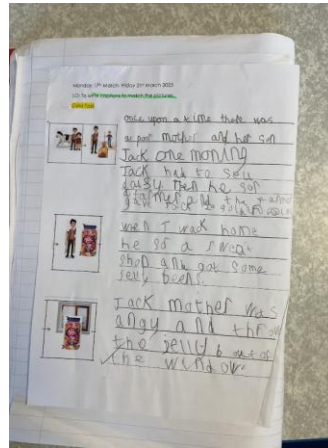 Monday 17th March- Friday 21st March 2025
LO: To write captions to match the pictures.
once upon a time there was
a poor mother and her son
Jack one morning
Jack had to sell
daisy then he sor
a farmer and the farmer
wen I wack home
he sor a sweat
shop and got some
jelly beens.
Jack mother was
angy and throw
the jelly b out of
the window.